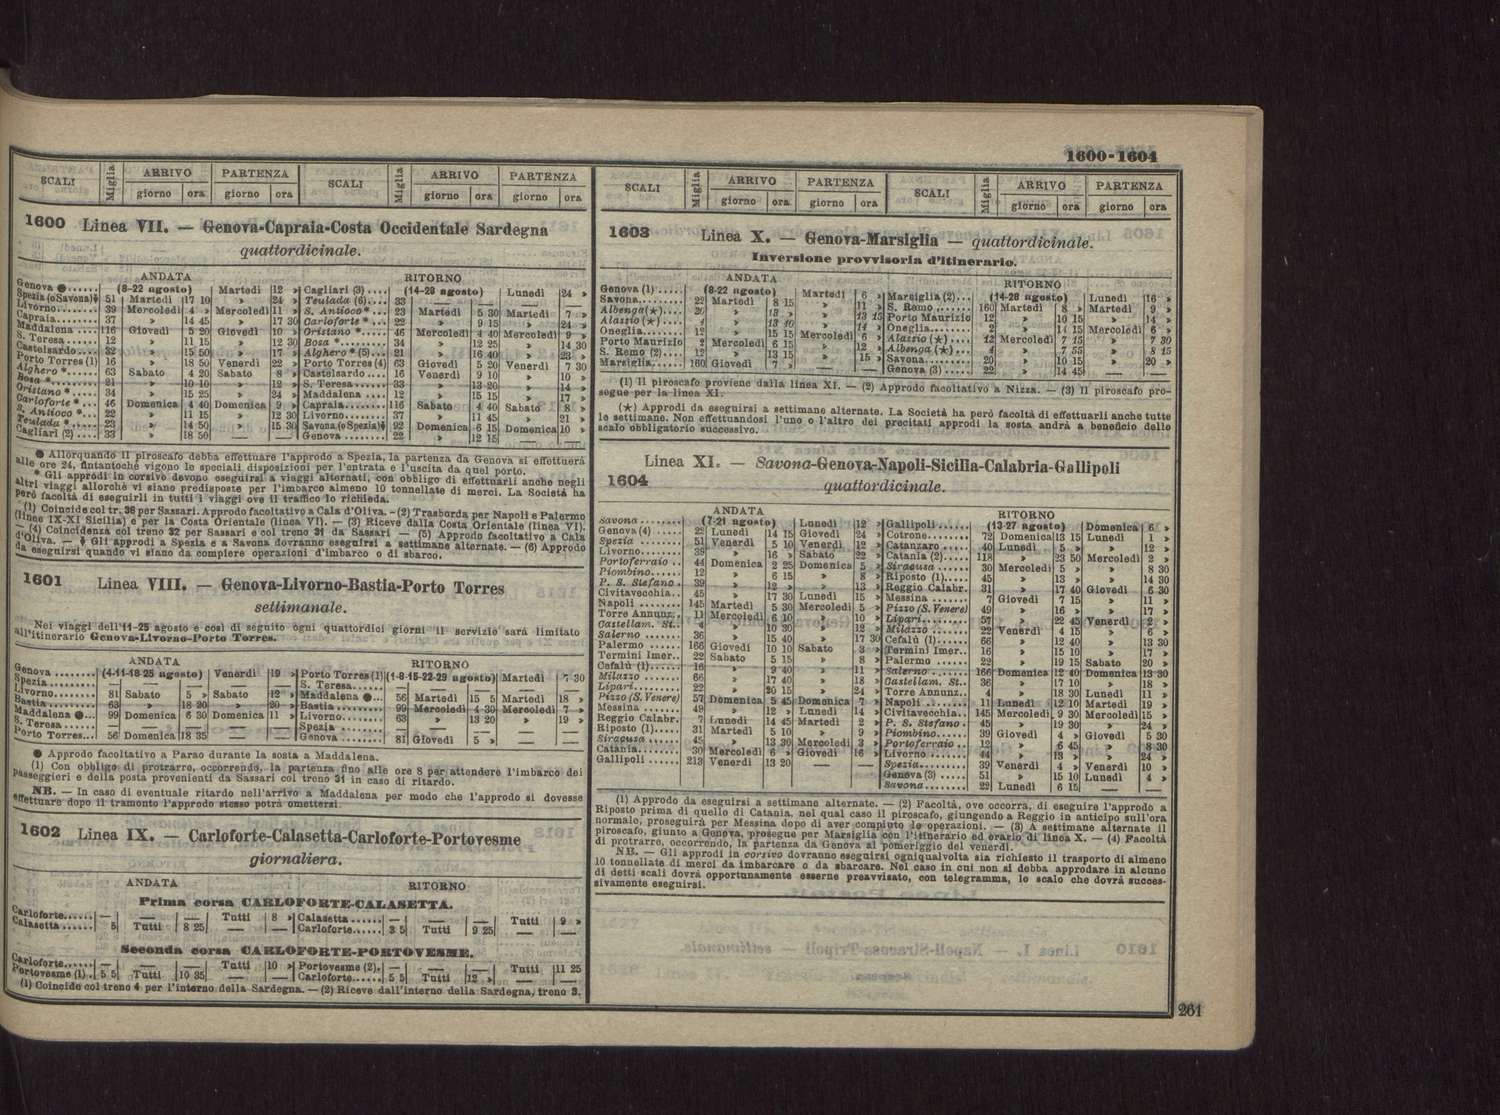 1600-1604
SCALI Miglia ARRIVO PARTENZA SCALI Miglia ARRIVO PARTENZA
giorno ora giorno ora giorno ora giorno ora
1600 Linea VII. — Genova-Capraia-Costa Occidentale Sardegna
quattordicinale.
ANDATA RITORNO
Genova ●...... (8-22 agosto) Martedì 12 » Cagliari (3).... (14-28 agosto) Lunedì 24 »
Spezia (o Savona) 51 Martedì 17 10 » 24 » Teulada (6).... 33 — — — —
Livorno........ 39 Mercoledì 4 » Mercoledì 11 » S. Antioco*... 23 Martedì 5 30 Martedì 7 »
Capraia....... 37 » 14 45 » 17 30 Carloforte *... 22 » 9 15 » 24 »
Maddalena .... 116 Giovedì 5 20 Giovedì 10 » Oristano *..... 46 Mercoledì 4 40 Mercoledì 9 »
S. Teresa...... 12 » 11 15 » 12 30 Bosa *......... 34 » 12 25 » 14 30
Castelsardo.... 32 » 15 50 » 17 » Alghero * (5)... 21 » 16 40 » 23 »
Porto Torres (1) 16 » 18 50 Venerdì 22 » Porto Torres (4) 63 Giovedì 5 20 Venerdì 7 30
Alghero *...... 63 Sabato 4 20 Sabato 8 » Castelsardo .... 16 Venerdì 9 10 » 10 »
Bosa *......... 21 » 10 10 » 12 » S. Teresa...... 33 » 13 20 » 14 »
Oristano *..... 34 » 15 25 » 24 » Maddalena .... 12 » 15 15 » 17 »
Carloforte *... 46 Domenica 4 40 Domenica 9 » Capraia....... 116 Sabato 4 40 Sabato 8 »
S. Antioco *... 22 » 11 15 » 12 30 Livorno....... 37 » 11 45 » 21 »
Teulada *...... 23 » 14 50 » 15 30 Savona (o Spezia) 92 Domenica 6 15 Domenica 10 »
Cagliari (2).... 33 » 18 50 — — Genova........ 22 » 12 15 — —
● Allorquando il piroscafo debba effettuare l'approdo a Spezia, la partenza da Genova si effettuerà
alle ore 24, fintantochè vigono le speciali disposizioni per l'entrata e l'uscita da quel porto.
* Gli approdi in corsivo devono eseguirsi a viaggi alternati, con obbligo di effettuarli anche negli
altri viaggi allorchè vi siano predisposte per l'imbarco almeno 10 tonnellate di merci. La Società ha
però facoltà di eseguirli in tutti i viaggi ove il traffico lo richieda.
(1) Coincide col tr. 36 per Sassari. Approdo facoltativo a Cala d'Oliva. — (2) Trasborda per Napoli e Palermo
(linee IX-XI Sicilia) e per la Costa Orientale (linea VI). — (3) Riceve dalla Costa Orientale (linea VI).
— (4) Coincidenza col treno 32 per Sassari e col treno 31 da Sassari — (5) Approdo facoltativo a Cala
d'Oliva. — Gli approdi a Spezia e a Savona dovranno eseguirsi a settimane alternate. — (6) Approdo
da eseguirsi quando vi siano da compiere operazioni d'imbarco o di sbarco.
1601 Linea VIII. — Genova-Livorno-Bastia-Porto Torres
settimanale.
Nei viaggi dell'11-25 agosto e così di seguito ogni quattordici giorni il servizio sarà limitato
all'itinerario Genova-Livorno-Porto Torres.
ANDATA RITORNO
Genova ........ (4-11-18-25 agosto) Venerdì 19 » Porto Torres (1) (1-8-15-22-29 agosto) Martedì 7 30
Spezia......... — — — — S. Teresa...... — — — —
Livorno........ 81 Sabato 5 » Sabato 12 » Maddalena ●... 56 Martedì 15 5 Martedì 18 »
Bastia......... 63 » 18 20 » 20 » Bastia......... 99 Mercoledì 4 30 Mercoledì 7 »
Maddalena ●... 99 Domenica 6 30 Domenica 11 » Livorno....... 63 » 13 20 » 19 »
S. Teresa...... — — — — Spezia ........ — — — —
Porto Torres... 56 Domenica 18 35 — — Genova........ 81 Giovedì 5 » — —
● Approdo facoltativo a Parao durante la sosta a Maddalena.
(1) Con obbligo di protrarre, occorrendo, la partenza fino alle ore 8 per attendere l'imbarco dei
passeggieri e della posta provenienti da Sassari col treno 31 in caso di ritardo.
NB. — In caso di eventuale ritardo nell'arrivo a Maddalena per modo che l'approdo si dovesse
effettuare dopo il tramonto l'approdo stesso potrà omettersi.
1602 Linea IX. — Carloforte-Calasetta-Carloforte-Portovesme
giornaliera.
ANDATA RITORNO
Prima corsa CARLOFORTE-CALASETTA.
Carloforte...... — — — Tutti 8 » Calasetta...... — — — Tutti 9 »
Calasetta...... 5 Tutti 8 25 — — Carloforte..... 3 5 Tutti 9 25 — —
Seconda corsa CARLOFORTE-PORTOVESME.
Carloforte...... — — — Tutti 10 » Portovesme (2). — — — Tutti 11 25
Portovesme (1). 5 5 Tutti 10 35 — — Carloforte...... 5 5 Tutti 12 » — —
(1) Coincide col treno 4 per l'interno della Sardegna. — (2) Riceve dall'interno della Sardegna, treno 3.
SCALI Miglia ARRIVO PARTENZA SCALI Miglia ARRIVO PARTENZA
giorno ora giorno ora giorno ora giorno ora
1603 Linea X. — Genova-Marsiglia — quattordicinale.
Inversione provvisoria d'itinerario.
ANDATA RITORNO
Genova (1)..... (8-22 agosto) Martedì 6 » Marsiglia (2)... (14-28 agosto) Lunedì 16 »
Savona........ 22 Martedì 8 15 » 11 » S. Remo....... 160 Martedì 8 » Martedì 9 »
Albenga(★).... 20 » 13 » » 13 15 Porto Maurizio 12 » 10 15 » 14 »
Alassio (★).... 4 » 13 40 » 14 » Oneglia........ 2 » 14 15 Mercoledì 6 »
Oneglia........ 12 » 15 15 Mercoledì 6 » Alassio (★).... 12 Mercoledì 7 15 » 7 30
Porto Maurizio 2 Mercoledì 6 15 » 12 » Albenga (★).... 4 » 7 55 » 8 15
S. Remo (2).... 12 » 13 15 » 15 » Savona........ 20 » 10 15 » 20 »
Marsiglia...... 160 Giovedì 7 » — — Genova (3)..... 22 » 14 45 — —
(1) Il piroscafo proviene dalla linea XI. — (2) Approdo facoltativo a Nizza. — (3) Il piroscafo pro-
segue per la linea XI.
(★) Approdi da eseguirsi a settimane alternate. La Società ha però facoltà di effettuarli anche tutte
le settimane. Non effettuandosi l'uno o l'altro dei precitati approdi la sosta andrà a beneficio dello
scalo obbligatorio successivo.
1604 Linea XI. — Savona-Genova-Napoli-Sicilia-Calabria-Gallipoli
quattordicinale.
ANDATA RITORNO
Savona ........ (7-21 agosto) Lunedì 12 » Gallipoli ...... (13-27 agosto) Domenica 6 »
Genova (4)..... 22 Lunedì 14 15 Giovedì 24 » Cotrone........ 72 Domenica 13 15 Lunedì 1 »
Spezia ........ 51 Venerdì 5 10 Venerdì 12 » Catanzaro ..... 40 Lunedì 5 » » 12 »
Livorno........ 39 » 16 » Sabato 22 » Catania (2)..... 118 » 23 50 Mercoledì 2 »
Portoferraio .. 44 Domenica 2 25 Domenica 5 » Siracusa ...... 30 Mercoledì 5 » » 8 30
Piombino...... 12 » 6 15 » 8 » Riposto (1)..... 45 » 13 » » 14 30
P. S. Stefano . 39 » 12 » » 13 » Reggio Calabr. 31 » 17 40 Giovedì 6 30
Civitavecchia.. 45 » 17 30 Lunedì 15 » Messina ....... 7 Giovedì 7 15 » 11 »
Napoli ........ 145 Martedì 5 30 Mercoledì 5 » Pizzo (S. Venere) 49 » 16 » » 17 »
Torre Annunz.. 11 Mercoledì 6 10 » 10 » Lipari......... 57 » 22 45 Venerdì 2 »
Castellam. St.. 4 » 10 30 » 12 » Milazzo ....... 22 Venerdì 4 15 » 6 »
Salerno ....... 36 » 15 40 » 17 30 Cefalù (1)...... 66 » 12 40 » 13 30
Palermo ...... 166 Giovedì 10 10 Sabato 3 » Termini Imer.. 16 » 15 10 » 17 »
Termini Imer.. 22 Sabato 5 15 » 8 » Palermo ...... 22 » 19 15 Sabato 20 »
Cefalù (1)...... 16 » 9 40 » 11 » Salerno ....... 166 Domenica 12 40 Domenica 13 30
Milazzo ....... 66 » 17 40 » 18 » Castellam. St.. 36 » 17 10 » 18 »
Lipari......... 22 » 20 15 » 24 » Torre Annunz.. 4 » 18 30 Lunedì 11 »
Pizzo (S. Venere) 57 Domenica 5 45 Domenica 7 » Napoli ........ 11 Lunedì 12 10 Martedì 19 »
Messina ....... 49 » 12 » Lunedì 14 » Civitavecchia.. 145 Mercoledì 9 30 Mercoledì 15 »
Reggio Calabr. 7 Lunedì 14 45 Martedì 2 » P. S. Stefano . 45 » 19 30 » 24 »
Riposto (1)..... 31 Martedì 5 10 » 9 » Piombino...... 39 Giovedì 4 » Giovedì 5 30
Siracusa ...... 45 » 13 30 Mercoledì 3 » Portoferraio .. 12 » 6 45 » 8 30
Catania....... 30 Mercoledì 6 » Giovedì 16 » Livorno ....... 44 » 13 » » 24 »
Gallipoli ...... 213 Venerdì 13 20 — — Spezia......... 39 Venerdì 4 » Venerdì 10 »
Genova (3) ..... 51 » 15 10 Lunedì 4 »
Savona ........ 22 Lunedì 6 15 — —
(1) Approdo da eseguirsi a settimane alternate. — (2) Facoltà, ove occorra, di eseguire l'approdo a
Riposto prima di quello di Catania, nel qual caso il piroscafo, giungendo a Reggio in anticipo sull'ora
normale, proseguirà per Messina dopo di aver compiuto le operazioni. — (3) A settimane alternate il
piroscafo, giunto a Genova, prosegue per Marsiglia con l'itinerario ed orario di linea X. — (4) Facoltà
di protrarre, occorrendo, la partenza da Genova al pomeriggio del venerdì.
NB. — Gli approdi in corsivo dovranno eseguirsi ogniqualvolta sia richiesto il trasporto di almeno
10 tonnellate di merci da imbarcare o da sbarcare. Nel caso in cui non si debba approdare in alcuno
di detti scali dovrà opportunamente esserne preavvisato, con telegramma, lo scalo che dovrà succes-
sivamente eseguirsi.
261